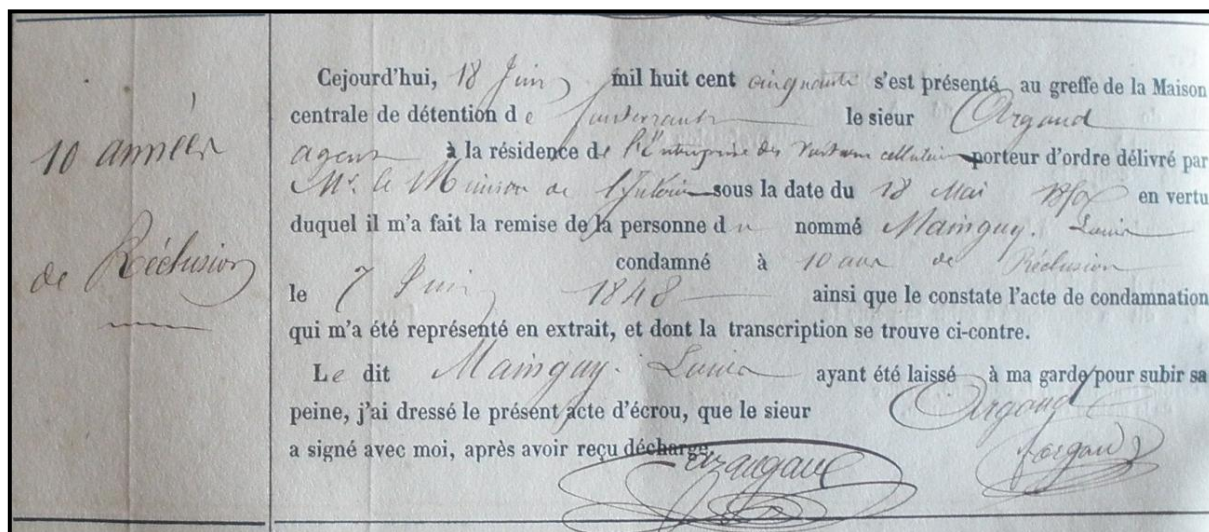 10 années
de Réclusion
Cejourd'hui, 18 Juin mil huit cent cinquante s'est présenté au greffe de la Maison
centrale de détention de le sieur Argaud
agent à la résidence de l'Entreprise des cellulaires porteur d'ordre délivré par
Mr. le Ministre de l'Intérieur sous la date du 18 Mai 1850 en vertu
duquel il m'a fait la remise de la personne du nommé Mainguy. Louis
condamné à 10 ans de Réclusion
le 7 Juin 1848 ainsi que le constate l'acte de condamnation
qui m'a été représenté en extrait, et dont la transcription se trouve ci-contre.
Le dit Mainguy. Louis ayant été laissé à ma garde pour subir sa
peine, j'ai dressé le présent acte d'écrou, que le sieur Argaud
a signé avec moi, après avoir reçu décharge.